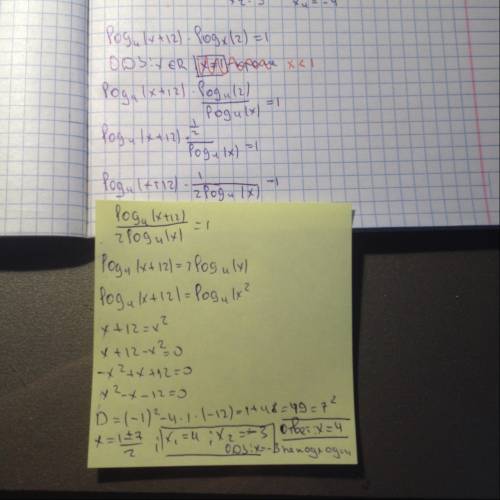 x₂ = 3 x₄ = -4
log₄(x+12) · logₓ(2) = 1
ODS: x ∈ R x≠1 x < 1
log₄(x+12) · log₄(2)/log₄(x) = 1
log₄(x+12) · ½/log₄(x) = 1
log₄(x+12) · 1/2log₄(x) = 1
log₄(x+12)/2log₄(x) = 1
log₄(x+12) = 2log₄(x)
log₄(x+12) = log₄(x²
x+12 = x²
x+12-x² = 0
-x²+x+12 = 0
x²-x-12 = 0
D = (-1)²-4·1·(-12) = 1+48 = 49 = 7²
x = 1±7/2 ; x₁ = 4 ; x₂ = -3 Ответ: x = 4
ODS: x = -3 неподходит